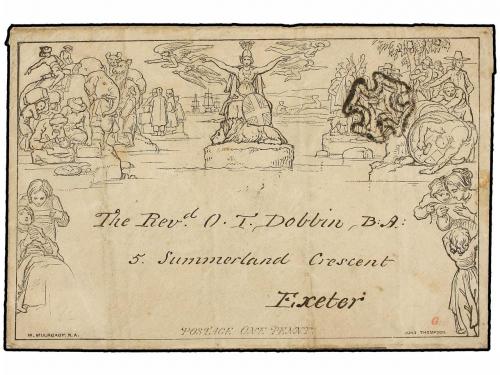 The Rev.d O. T. Dobbin, B.A:
5. Summerland Crescent
Exeter
POSTAGE ONE PENNY.
W. MULREADY, R.A.
JOHN THOMPSON.
G.